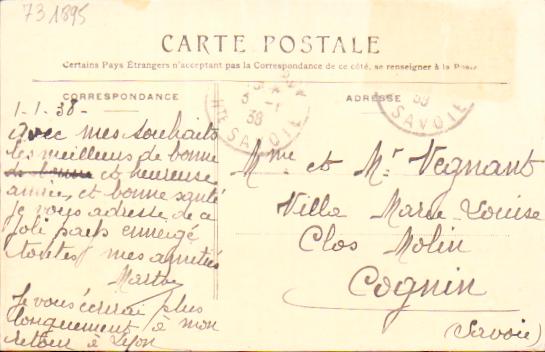 731895
CARTE POSTALE
Certains Pays Étrangers n'acceptant pas la Correspondance de ce côté, se renseigner à la Poste
CORRESPONDANCE
1-1-38-
Avec mes souhaits
les meilleurs de bonne
et heureuse
année, et bonne santé
je vous adresse de ce
joli pays enneigé
toutes mes amitiés
Marthe
Je vous écrirai plus
longuement à mon
retour à Lyon
ADRESSE
Mme et Mr Vegnant
Villa Marie-Louise
Clos Molin
Cognin
(Savoie)
38
HTE SAVOIE
38
SAVOIE